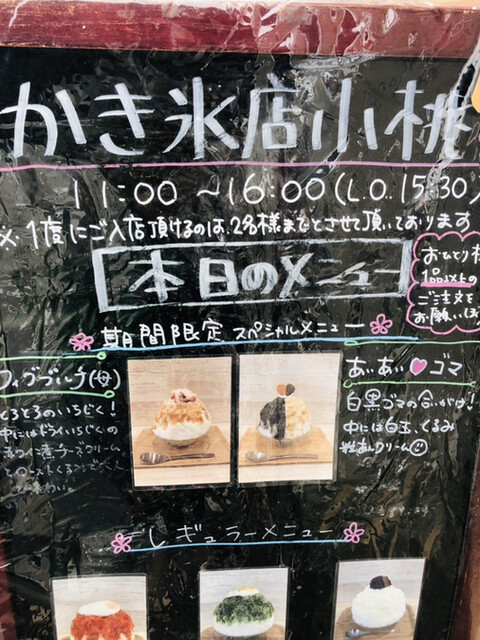 かき氷店小桃
11:00 ~16:00(L.O.15:30)
※1度にご入店頂けるのは、2名様までとさせて頂いております
本日のメニュー
おひとり様
1品以上の
ご注文を
お願い
期間限定 スペシャルメニュー
とろとろのいちじく!
中にはドライいちじくの
赤ワイン煮チーズクリーム
あいあい♡ゴマ
白黒ゴマの合いがけ!
中には白玉、くるみ
クリーム☺
レギュラーメニュー